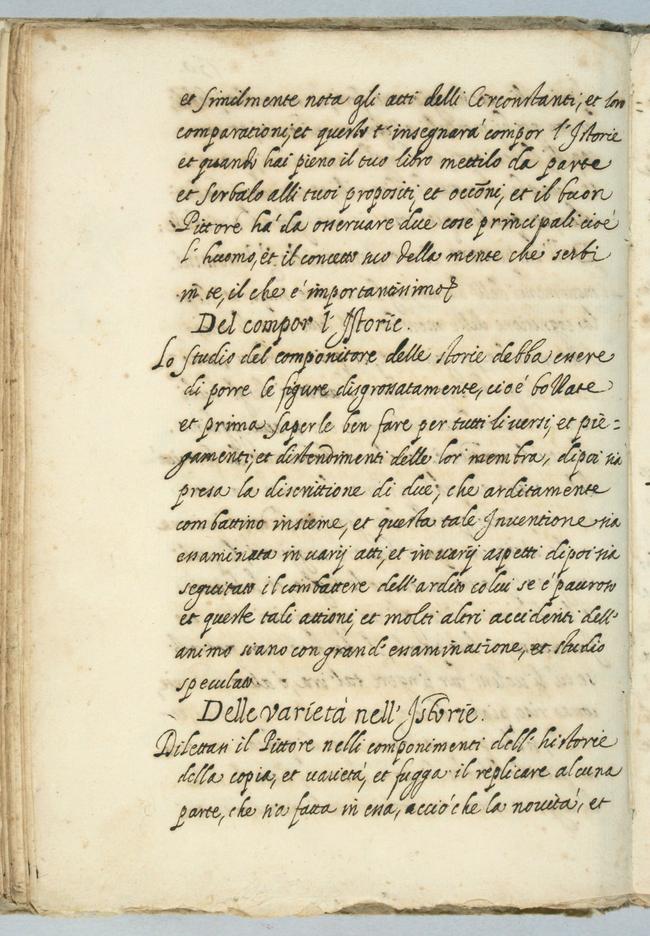 et similmente nota gli atti delli Circonstanti, et loro
comparationi, et questo t'insegnarà compor l'Istorie
et quando hai pieno il tuo libro mettilo da parte
et serbalo alli tuoi propositi, et occõni, et il buon
Pittore hà da osservare due cose principali cioé
l'huomo, et il concetto suo della mente che serbi
in te, il che e' importantissimo
Del compor l'Istorie.
Lo studio del componitore delle storie debba essere
di porre le figure disgrossatamente, cioé bozzate
et prima saperle ben fare per tutti li versi, et pie=
gamenti, et distendimenti delle lor membra, dipoi sia
presa la discrittione di due, che arditamente
combattino insieme, et questa tale Inventione sia
essaminata in varij atti, et in varij aspetti dipoi sia
seguitato il combattere dell'ardito colui se é pauroso
et queste tali attioni, et molti altri accidenti dell'
animo siano con grand' essaminatione, et studio
speculato
Delle varietà nell'Istorie.
Dilettasi il Pittore nelli componimenti dell'historie
della copia, et varietá, et fugga il replicare alcuna
parte, che sia fatta in essa, acció che la novitá, et